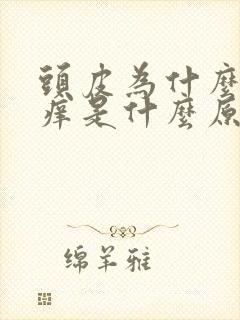 頭皮為什麼
痒是什麼原
绵羊雅